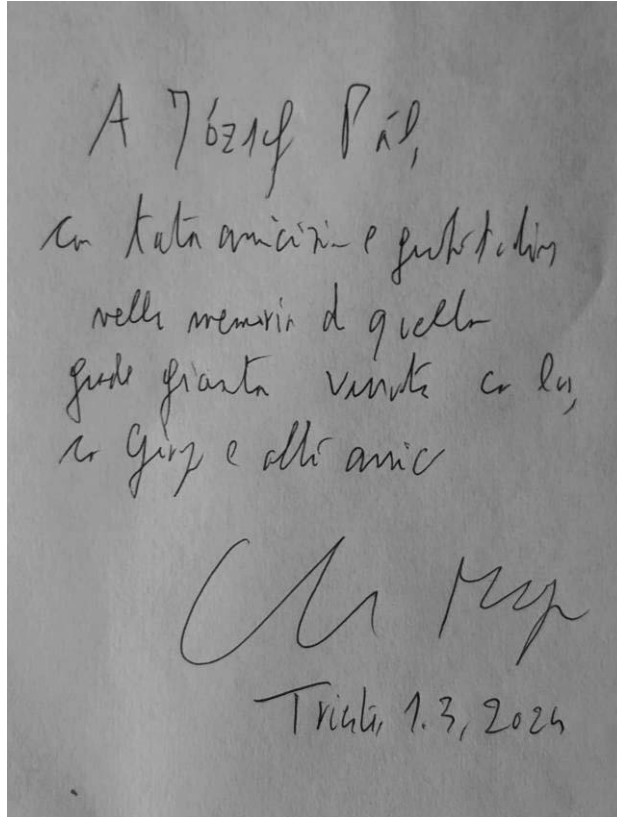 A József Pál,
con tanta amicizia e gratitudine
nella memoria di quella
grande giornata vissuta con lei,
con e altri amici
Trieste, 1.3, 2024